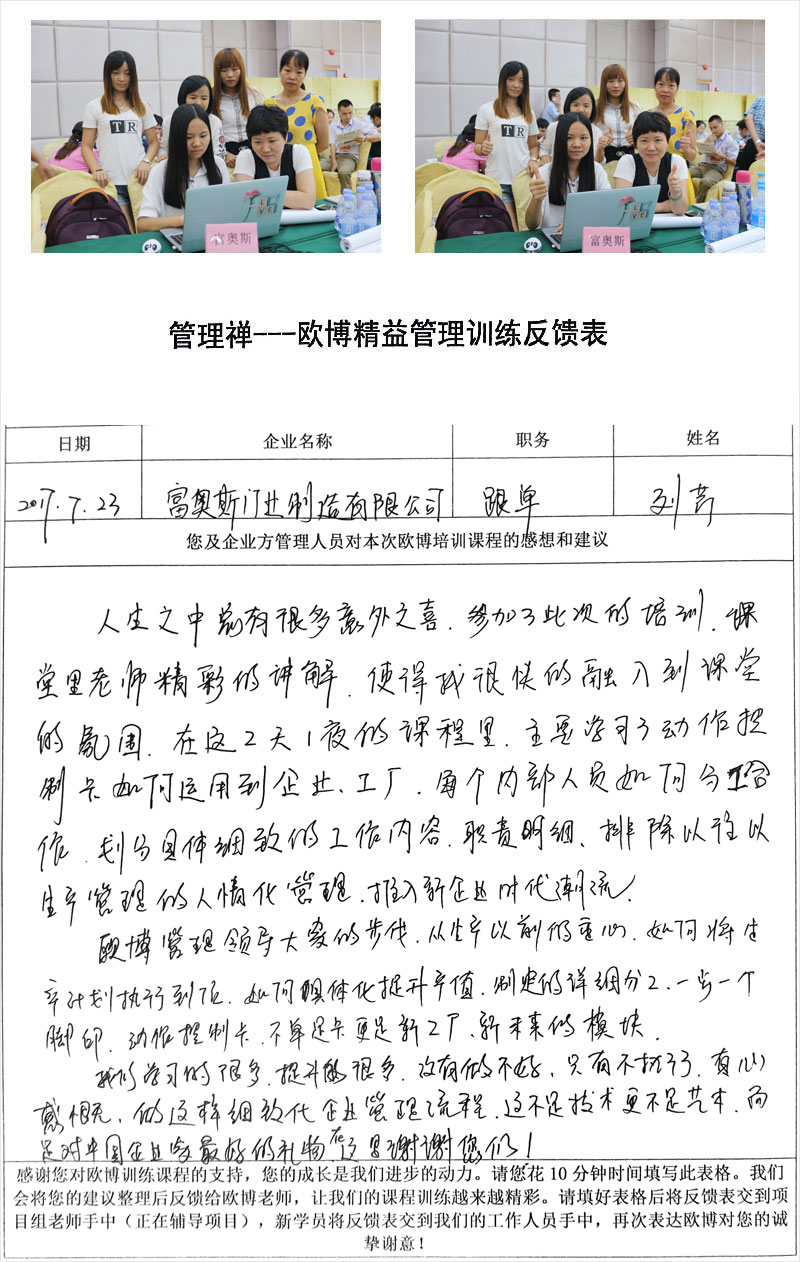 TR
LOVE
富奥斯
TR
LOVE
富奥斯
管理禅---欧博精益管理训练反馈表
日期 企业名称 职务 姓名
2017.7.23 富奥斯门业制造有限公司 跟单 刘芳
您及企业方管理人员对本次欧博培训课程的感想和建议
人生之中总有很多意外之喜.参加了此次的培训.课
堂里老师精彩的讲解.使得我很快的融入到课堂
的氛围.在这2天1夜的课程里.主要学习了动作控
制卡如何运用到企业、工厂.每个内部人员如何分工合
作.划分具体细致的工作内容.职责明细、排除以往以
生产管理的人情化管理.推入新企业时代潮流.
欧博管理领导大家的步伐.从生产以前的重心.如何将生
产计划执行到位.如何具体化提升产值.制定的详细分工.一步一个
脚印.动作控制卡.不单是卡更是新工厂.新未来的模块.
我们学习的很多.提升的很多.没有做不好,只有不执行.真心
感相见.做这样细致化企业管理流程.这不是技术更不是艺术.而
是对中国企业家最好的礼物在这里谢谢您们!
感谢您对欧博训练课程的支持，您的成长是我们进步的动力。请您花 10 分钟时间填写此表格。我们
会将您的建议整理后反馈给欧博老师，让我们的课程训练越来越精彩。请填好表格后将反馈表交到项
目组老师手中（正在辅导项目），新学员将反馈表交到我们的工作人员手中，再次表达欧博对您的诚
挚谢意！